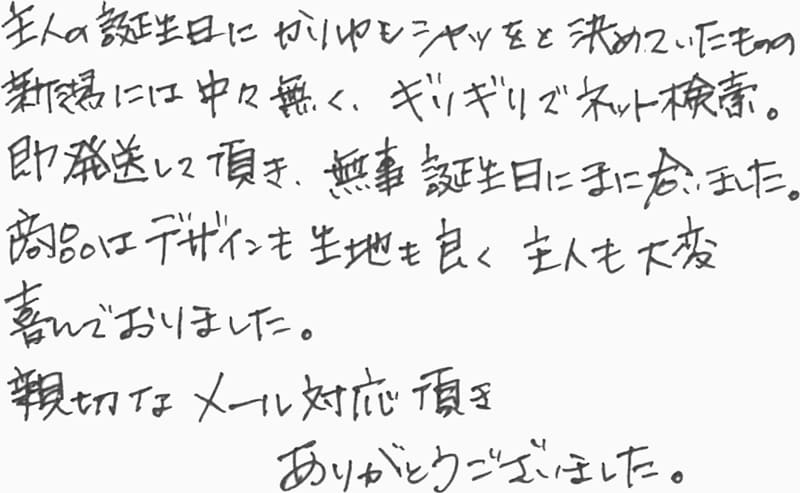 主人の誕生日にかりゆしシャツをと決めていたものの
新潟には中々無く、ギリギリでネット検索。
即発送して頂き、無事誕生日にまに合いました。
商品はデザインも生地も良く主人も大変
喜んでおりました。
親切なメール対応頂き
ありがとうございました。